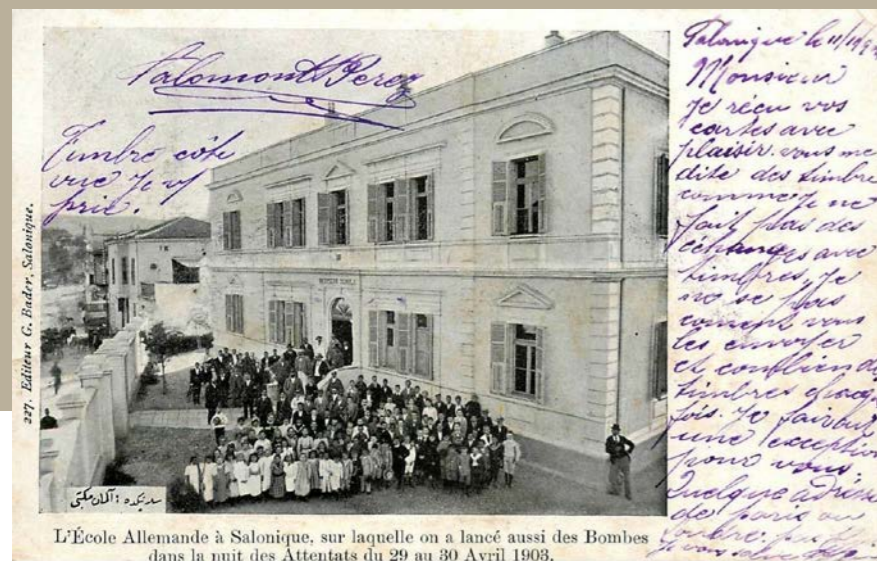 Salomon Perez
Timbre côté
vue Je v/
prie.
227. Editeur G. Bader, Salonique.
L'École Allemande à Salonique, sur laquelle on a lancé aussi des Bombes
dans la nuit des Attentats du 29 au 30 Avril 1903.
Salonique le
Monsieur
Je réçu vos
cartes avec
plaisir. vous me
dite des timbre
comme Je ne
fait pas des
échanges avec
timbres, Je
ne se pas
coment vous
les envoyer
et combien de
timbres
fois. Je fairait
une exception
pour vous.
Quelque adresse
de paris ou
Je vous salue